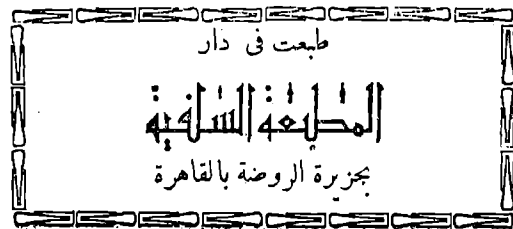 طبعت فى دار
المطبعة السلفية
بجزيرة الروضة بالقاهرة